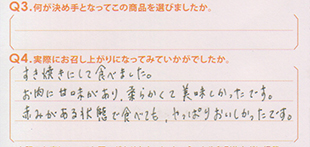 Q3.何が決め手となってこの商品を選びましたか。
Q4.実際にお召し上がりになってみていかがでしたか。
すき焼きにして食べました。
お肉に甘味があり、柔らかくて美味しかったです。
赤みがある状態で食べても、やっぱりおいしかったです。